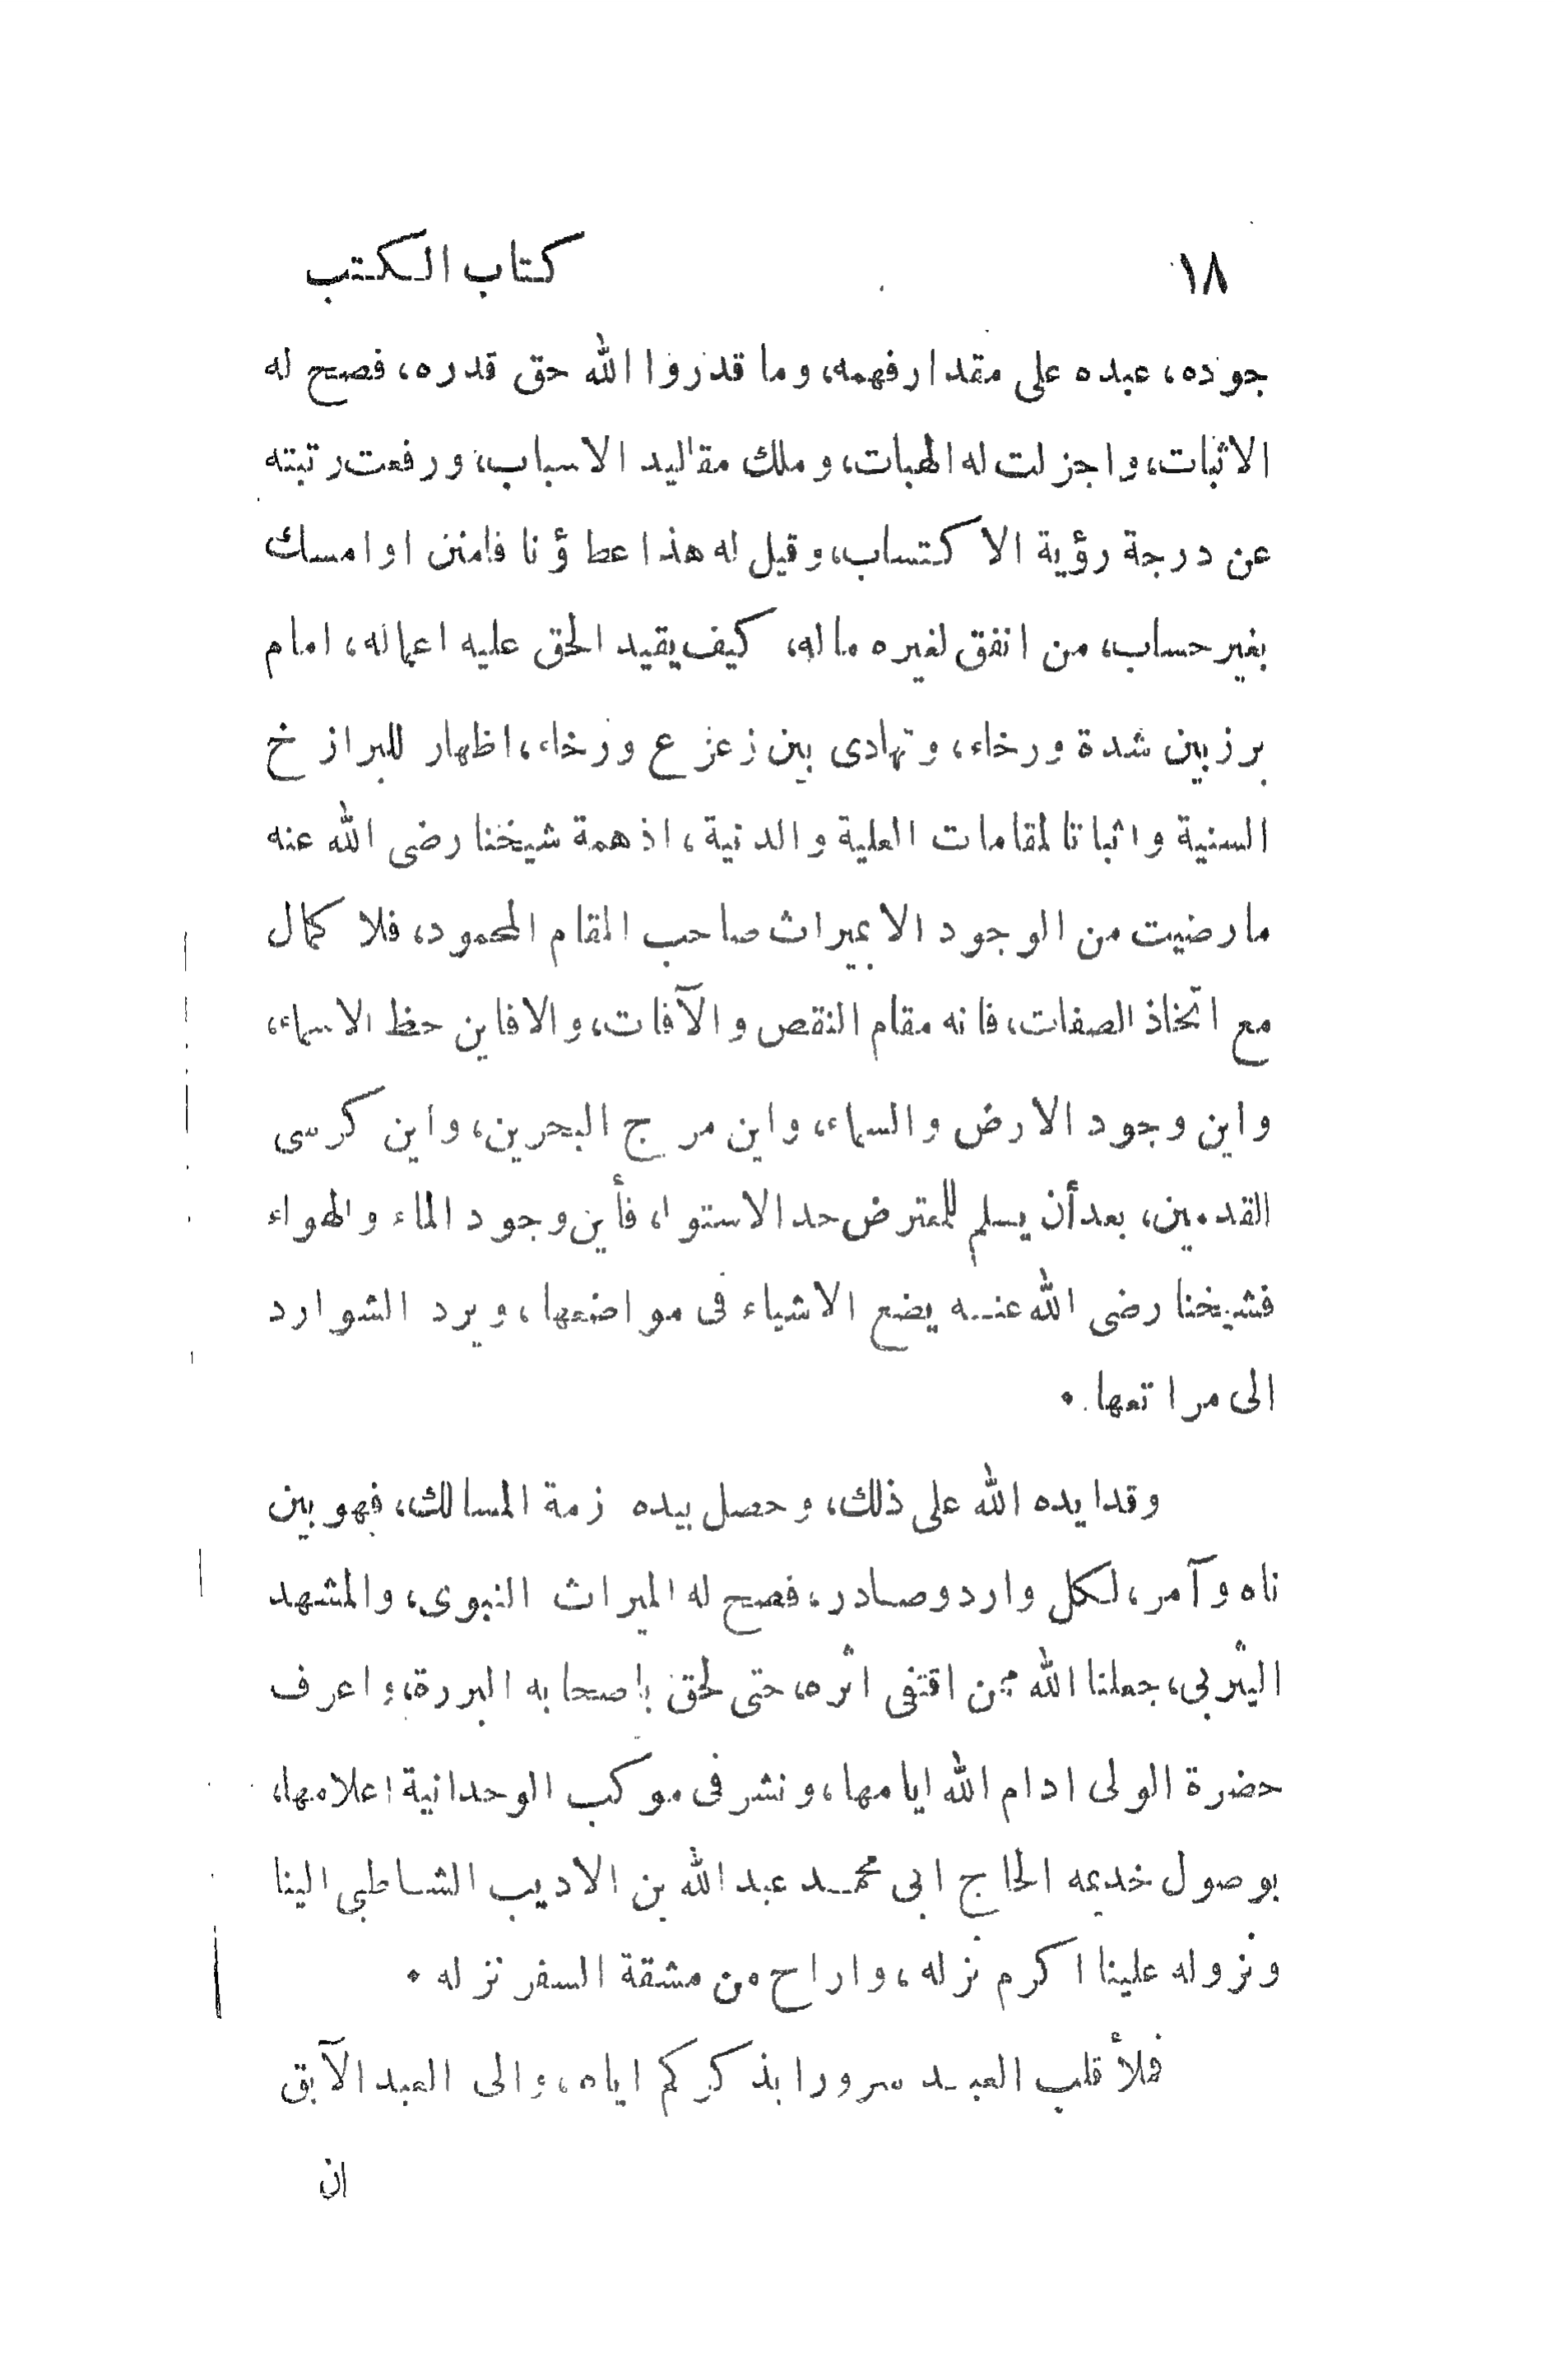 ١٨ كتاب الكتب
جوده، عبده على مقدار فهمه، وما قدروا الله حق قدره، فصح له
الاثبات، واجزلت له الهبات، وملك مقاليد الاسباب، ورفعت رتبته
عن درجة رؤية الاكتساب، وقيل له هذا عطاؤنا فامنن او امسك
بغير حساب، من انفق لغيره ماله، كيف يقيد الحق عليه اعماله، امام
برز بين شدة ورخاء، وتهادى بين زعزع ورخاء، اظهار للبرازخ
السنية واثباتا لمقامات العلية والدنية، اذ همة شيخنا رضى الله عنه
مارضيت من الوجود الا بميراث صاحب المقام المحمود، فلا كمال
مع اتخاذ الصفات، فانه مقام النقص والآفات، والا فاين حظ الاسماء،
واين وجود الارض والسماء، واين مرج البحرين، واين كرسى
القدمين، بعد أن يسلم للمعترض حد الاستواء، فأين وجود الماء والهواء
فشيخنا رضى الله عنه يضع الاشياء فى مواضعها، ويرد الشوارد
الى مراتعها.
وقد ايده الله على ذلك، وحصل بيده زمة المسالك، فهو بين
ناه وآمر، لكل وارد وصادر، فصح له الميراث النبوى، والمشهد
اليثربى، جعلنا الله ممن اقتفى اثره، حتى لحق باصحابه البررة، واعرف
حضرة الولى ادام الله ايامها، ونشر فى موكب الوحدانية اعلامها،
بوصول خديمه الحاج ابى محمد عبد الله بن الاديب الشاطبى الينا
ونزوله علينا اكرم نزله، واراح من مشقة السفر نزله.
فملأ قلب العبد سرورا بذكركم اياه، والى العبد الآبق
ان